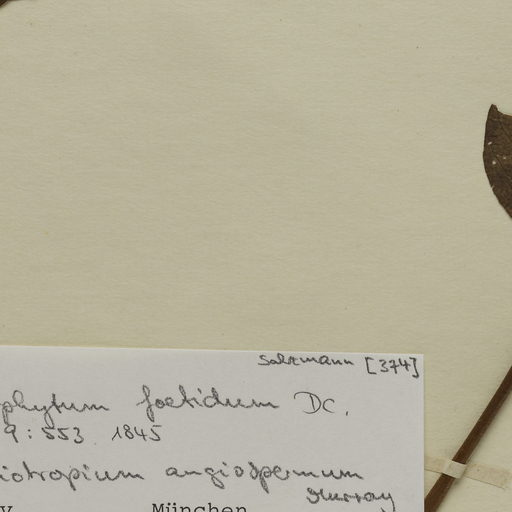 Salzmann [374]
phytum foetidum DC.
9: 553 1845
iotropium angiospermum
Murray
y München